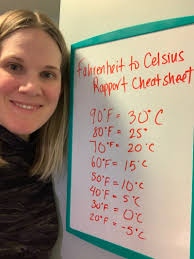 Fahrenheit to Celsius
Rapport Cheatsheet
90°F = 30°C
80°F = 25°
70°F = 20°C
60°F = 15°C
50°F = 10°C
40°F = 5°C
30°F = 0°C
20°F = -5°C